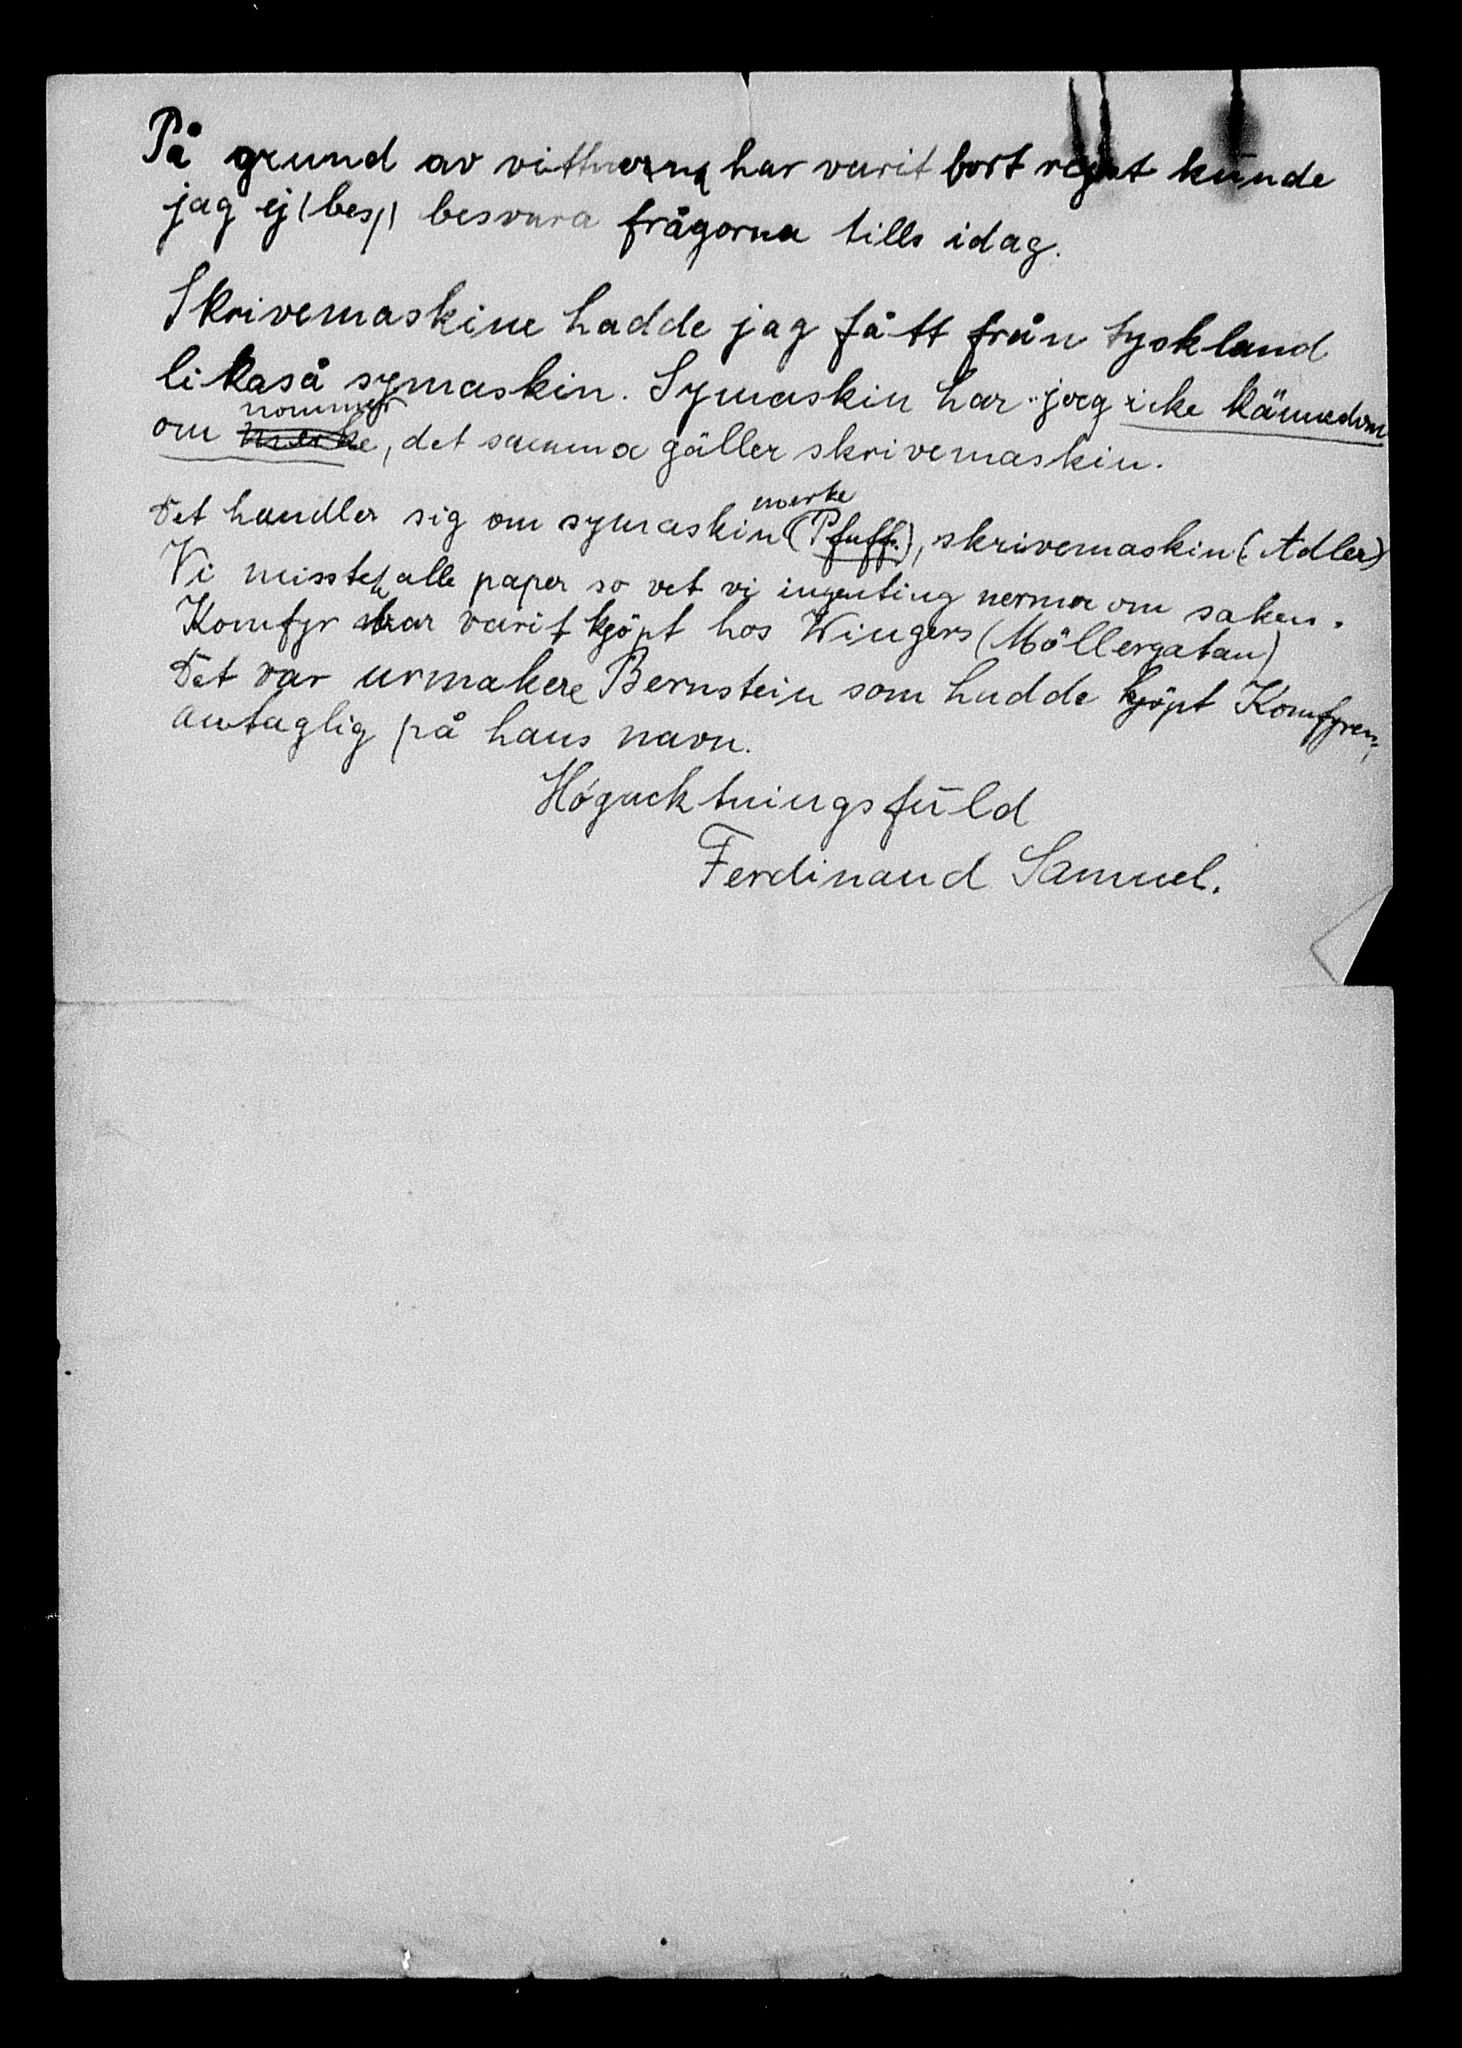 På grund av vittnerna har varit bort regst kunde
jag ej (bes,) besvara frågorna tills idag.
Skrivemaskine hadde jag fått från tyskland
likaså symaskin. Symaskin har jag icke kännedom
om nommer merke, det samma gäller skrivemaskin.
Det handler sig om symaskin merke (Pfaff.), skrivemaskin (Adler)
Vi misste alle paper so vet vi ingenting nerma om saken.
Komfyr har varit kjöpt hos Wingers (Möllergatan)
Det var urmakere Bernstein som hadde kjöpt Komfyren,
antaglig på hans navn.
Högacktningsfuld
Ferdinand Samuel.